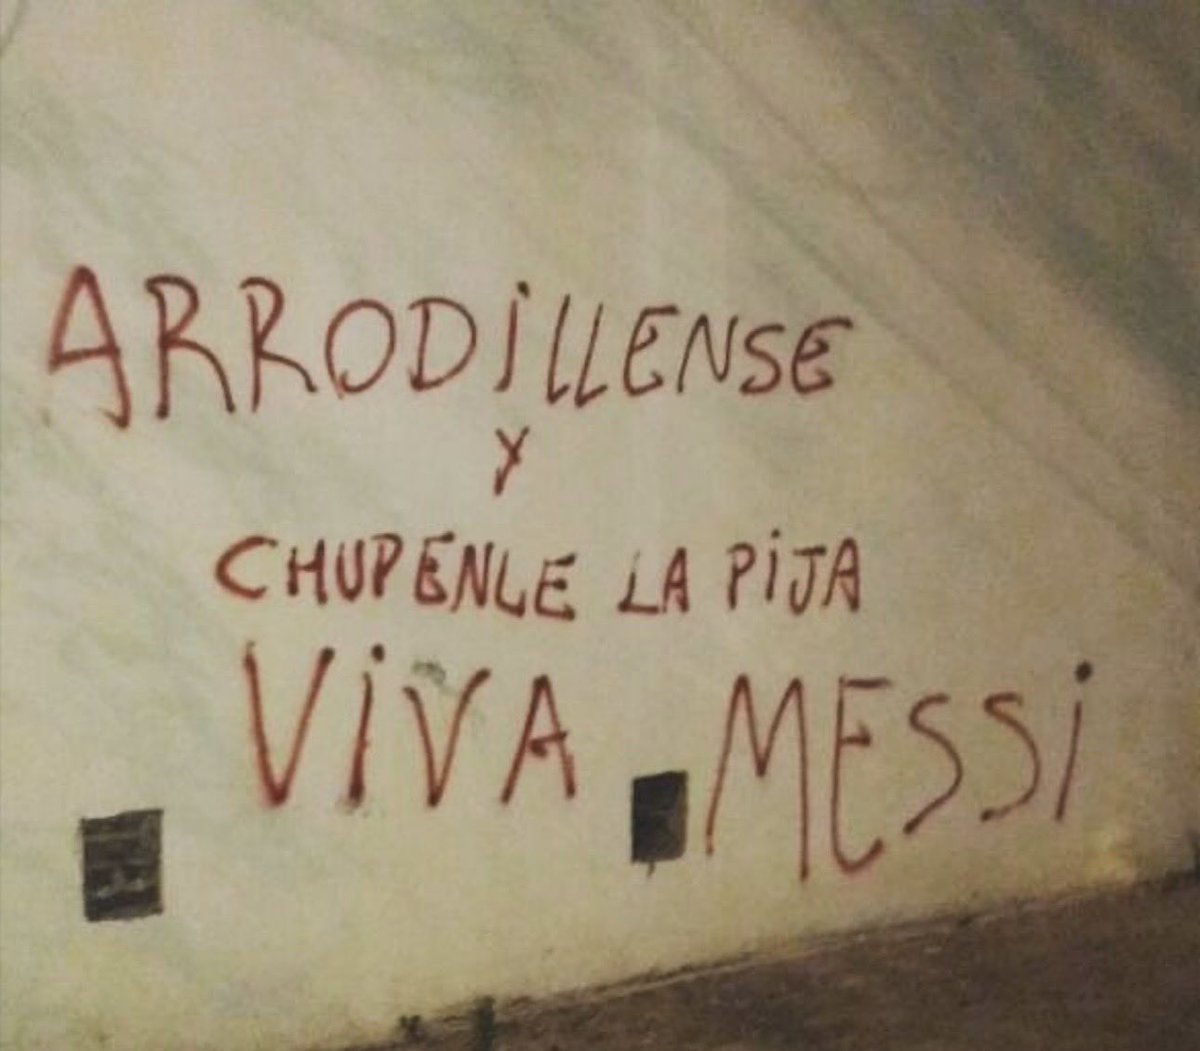 ARRODiLLENSE
Y
CHUPENLE LA PiJA
ViVA MESSi